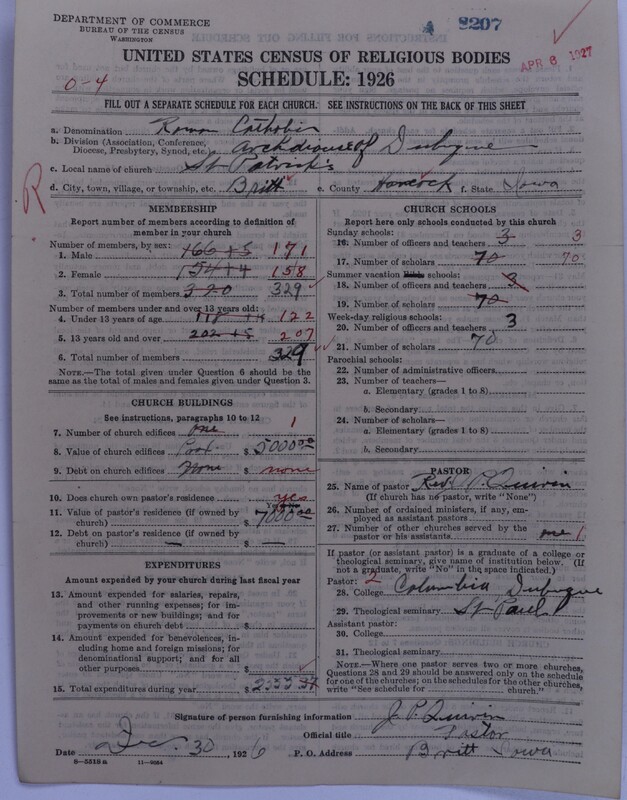 DEPARTMENT OF COMMERCE
BUREAU OF THE CENSUS
WASHINGTON
8207
APR 6 1927
UNITED STATES CENSUS OF RELIGIOUS BODIES
SCHEDULE: 1926
0-4
FILL OUT A SEPARATE SCHEDULE FOR EACH CHURCH. SEE INSTRUCTIONS ON THE BACK OF THIS SHEET
a. Denomination Roman Catholic
b. Division (Association, Conference, Diocese, Presbytery, Synod, etc.) Archdiocese of Dubuque
c. Local name of church St Patrick's
d. City, town, village, or township, etc. Britt e. County Hancock f. State Iowa
R
MEMBERSHIP
Report number of members according to definition of member in your church
Number of members, by sex:
1. Male 166 + 5 171
2. Female 154 + 4 158
3. Total number of members 320 329
Number of members under and over 13 years old:
4. Under 13 years of age 122
5. 13 years old and over 202 + 5 207
6. Total number of members 329
NOTE.—The total given under Question 6 should be the same as the total of males and females given under Question 3.
CHURCH BUILDINGS
See instructions, paragraphs 10 to 12
7. Number of church edifices one 1
8. Value of church edifices $
9. Debt on church edifices None $ none
10. Does church own pastor's residence yes
Yes or No
11. Value of pastor's residence (if owned by church) $ 7000.00
12. Debt on pastor's residence (if owned by church) — $ —
EXPENDITURES
Amount expended by your church during last fiscal year
13. Amount expended for salaries, repairs, and other running expenses; for improvements or new buildings; and for payments on church debt $
14. Amount expended for benevolences, including home and foreign missions; for denominational support; and for all other purposes
15. Total expenditures during year $
CHURCH SCHOOLS
Report here only schools conducted by this church
Sunday schools:
16. Number of officers and teachers 3 3
17. Number of scholars 70 70
Summer vacation Bible schools:
18. Number of officers and teachers 3
19. Number of scholars 70
Week-day religious schools:
20. Number of officers and teachers 3
21. Number of scholars 70
Parochial schools:
22. Number of administrative officers
23. Number of teachers—
a. Elementary (grades 1 to 8)
b. Secondary
24. Number of scholars—
a. Elementary (grades 1 to 8)
b. Secondary
PASTOR
25. Name of pastor Rev. J. P. Quirin
(If church has no pastor, write "None")
26. Number of ordained ministers, if any, employed as assistant pastors
27. Number of other churches served by the pastor or his assistants one 1
If pastor (or assistant pastor) is a graduate of a college or theological seminary, give name of institution below. (If not a graduate, write "No" in the space indicated.)
Pastor: 2
28. College Columbia, Dubuque
29. Theological seminary St Paul
Assistant pastor:
30. College
31. Theological seminary
NOTE.—Where one pastor serves two or more churches, Questions 28 and 29 should be answered only on the schedule for one of the churches; on the schedules for the other churches, write "See schedule for church."
Signature of person furnishing information J. P. Quirin
Official title Pastor
Date Dec. 30, 1926 P. O. Address Britt Iowa
8—5518a 11—9084